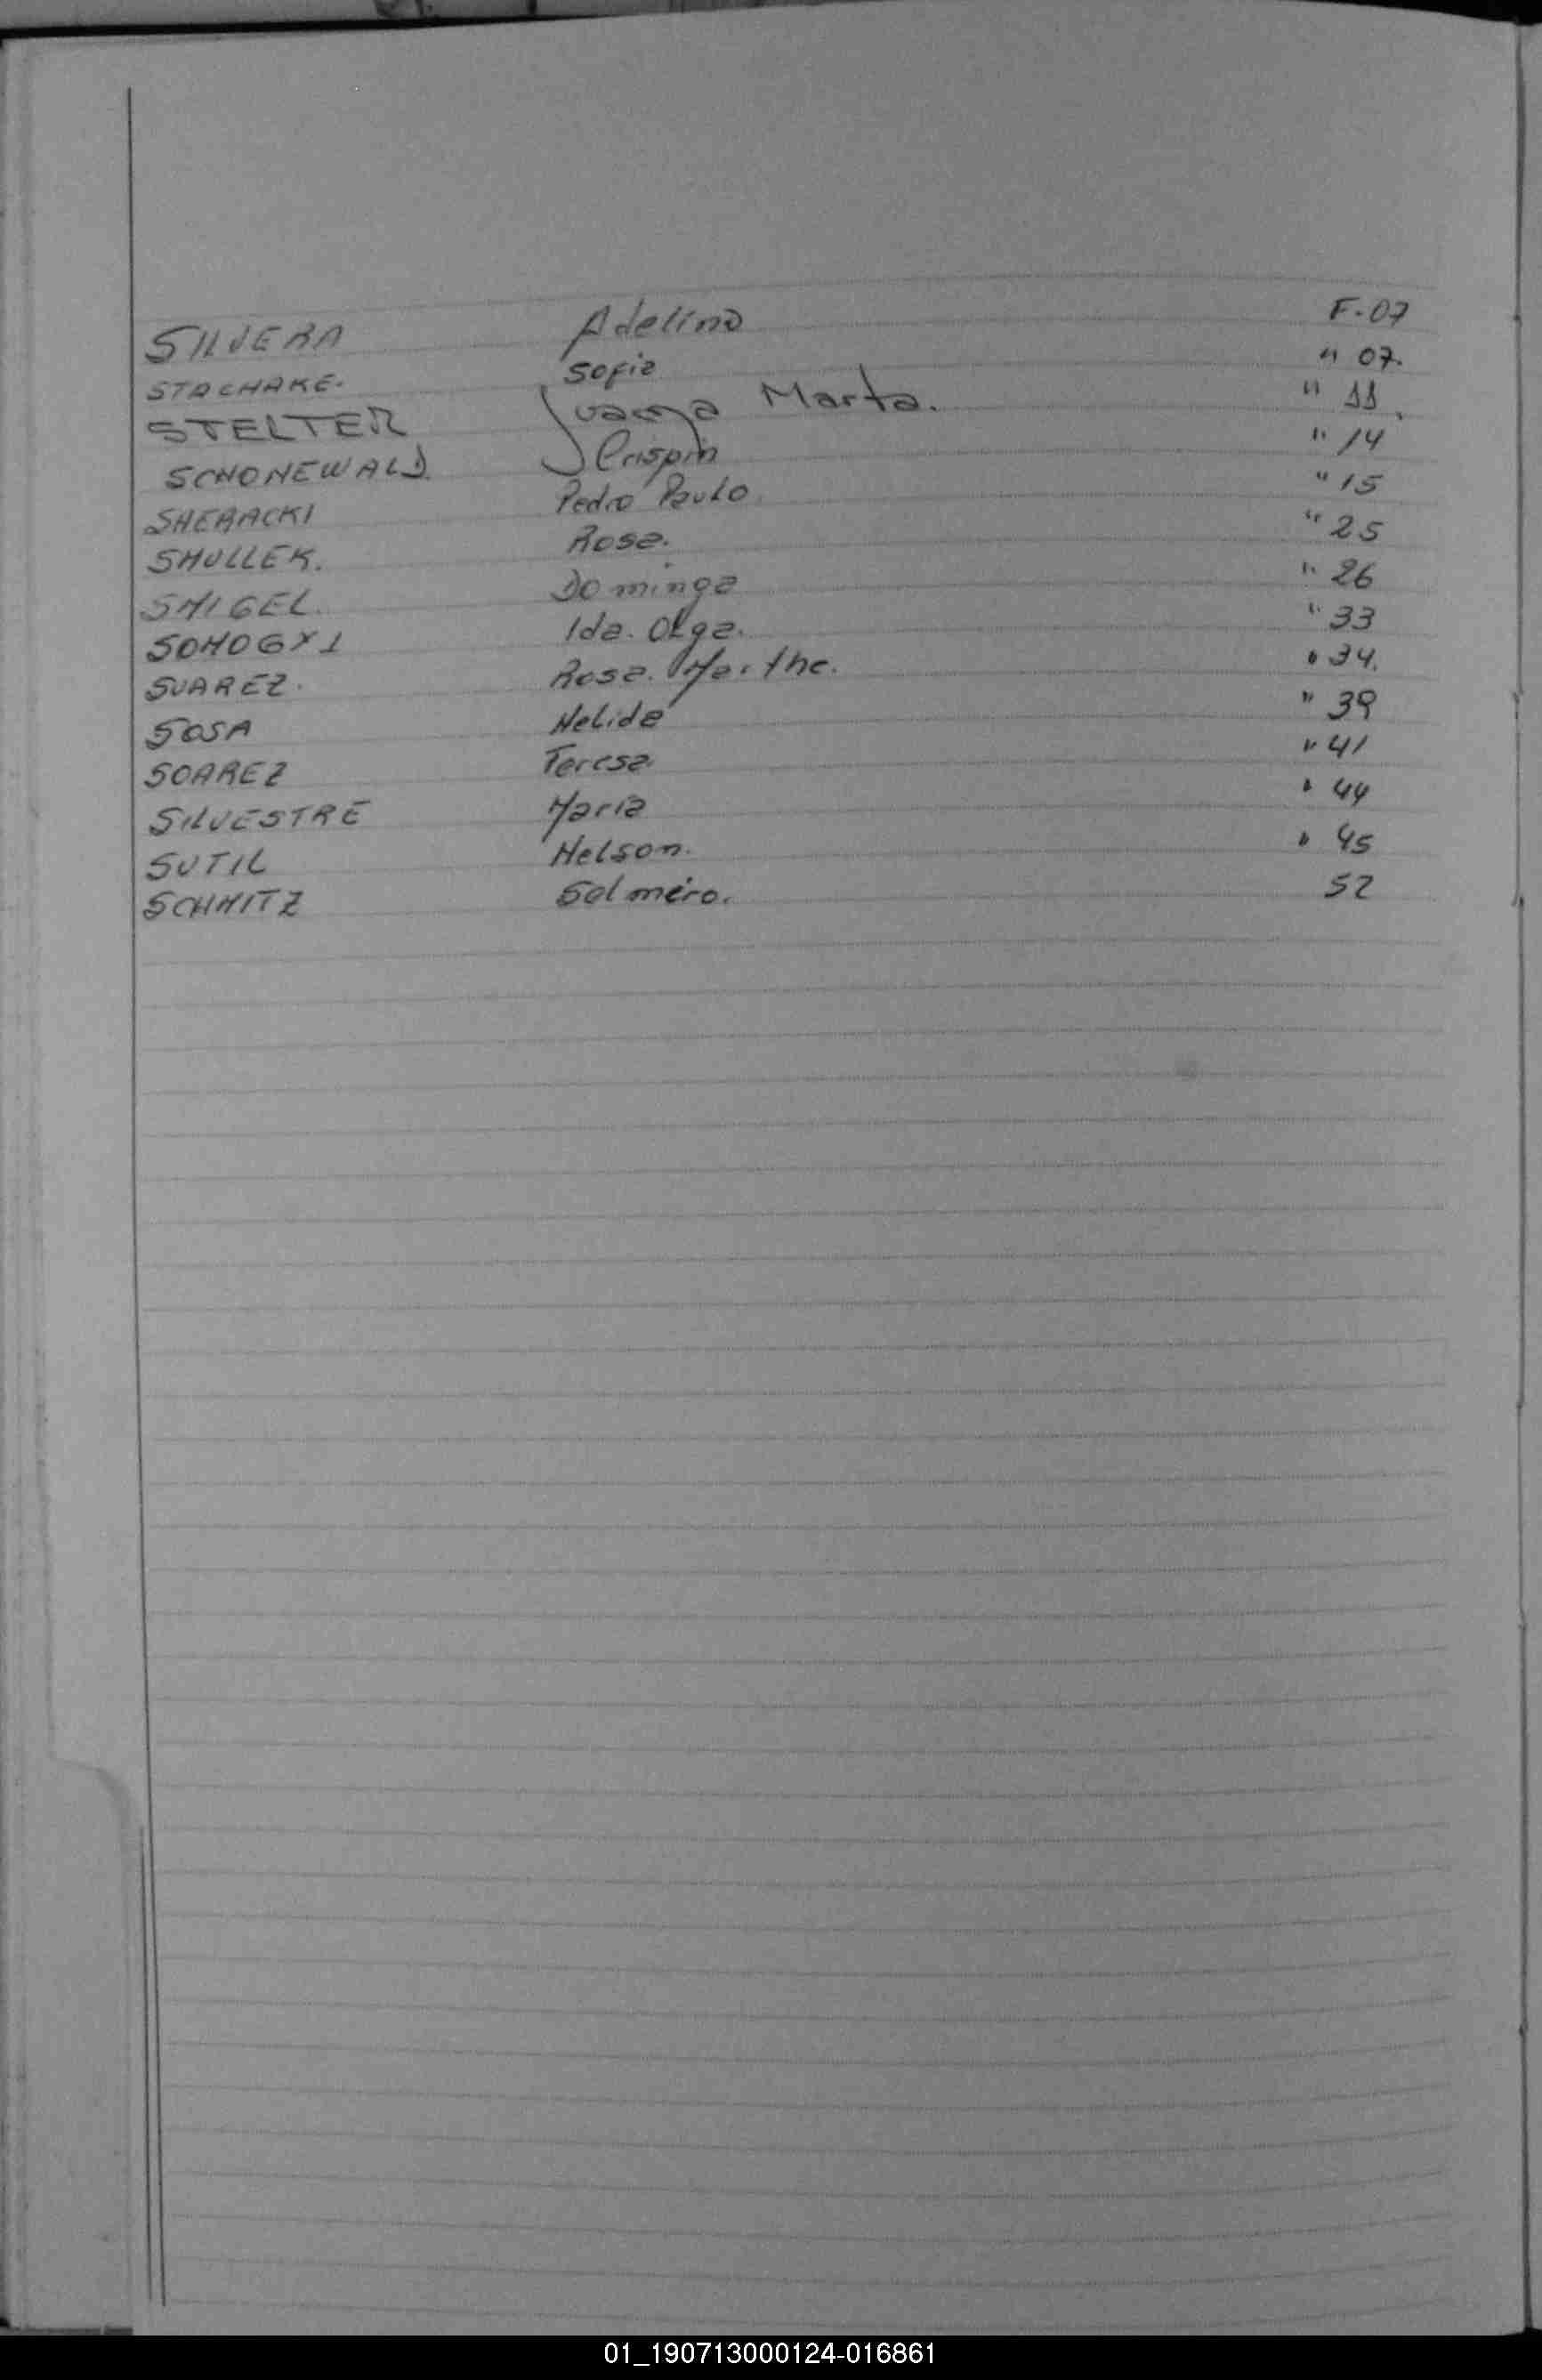 SILVERA Adelino F-07
STACHAKE. Sofia " 07.
STELTER Juana Marta. " 11.
SCHONEWALD Crispin " 14
SHERACKI Pedro Paulo. " 15
SMULLEK. Rosa. " 25
SMIGEL. Dominga " 26
SOMOGYI Ida. Olga. " 33
SUAREZ. Rosa. Marthe. " 34.
SOSA Nelida " 39
SOAREZ Teresa. " 41
SILVESTRE Maria " 44
SUTIL Nelson. " 45
SCHMITZ Selmiro. 52
01_190713000124-016861